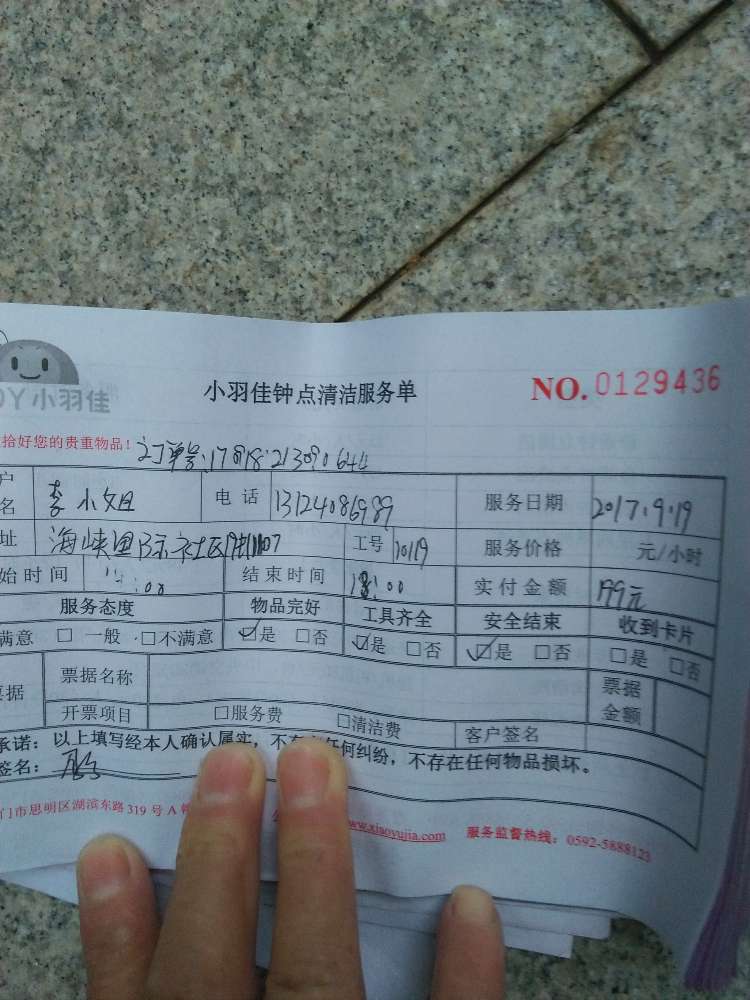 小羽佳
小羽佳钟点清洁服务单
NO. 0129436
拾好您的贵重物品！
订单号:
名 李小姐 电话 13124086989 服务日期 2017.9.19
址 海峡国际社区 工号 服务价格 元/小时
始时间 结束时间 18:00 实付金额 199元
服务态度 物品完好 工具齐全 安全结束 收到卡片
满意 □ 一般 □不满意 ☑是 □否 ☑是 □否 ☑是 □否 □是 □否
票据名称 票据金额
开票项目 □服务费 □清洁费 客户签名
承诺：以上填写经本人确认属实，不存在任何纠纷，不存在任何物品损坏。
签名：
门市思明区湖滨东路 319 号 A
www.xiaoyujia.com 服务监督热线：0592-5888123